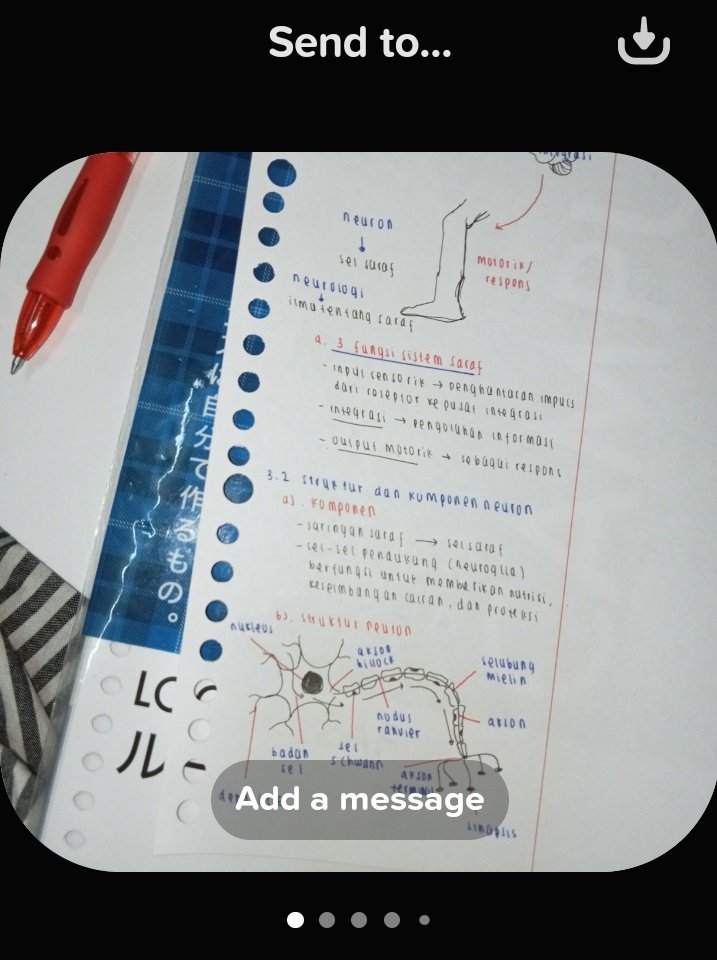 Send to...
integrasi
neuron
↓
sel saraf
motorik/
respons
neurologi
↓
ilmu tentang saraf
a. 3 fungsi sistem saraf
- input sensorik → penghantaran impuls
dari reseptor ke pusat integrasi
- integrasi → pengolahan informasi
- output motorik → sebagai respons
3.2 struktur dan komponen neuron
a). komponen
- jaringan saraf → sel saraf
- sel-sel pendukung (neuroglia)
berfungsi untuk memberikan nutrisi,
keseimbangan cairan, dan proteksi
b). struktur neuron
nucleus
akson
hillock
selubung
mielin
nodus
ranvier
akson
badan
sel
sel
schwann
akson
terminal
Add a message
sinapsis
自分で作るもの。